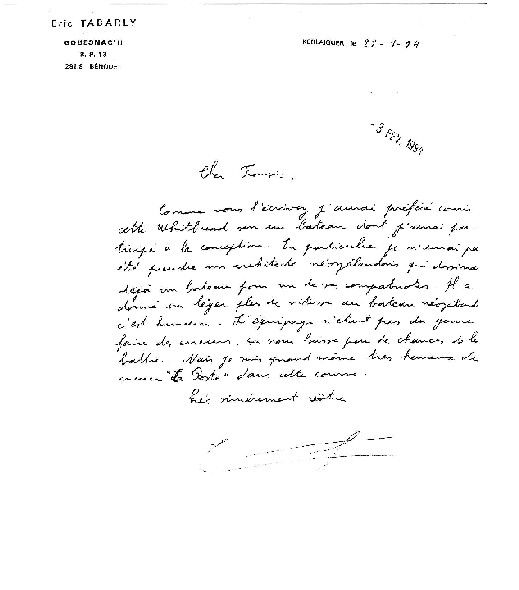 Eric TABARLY
GOUESNAC'H
B. P. 13
BÉNODET
le
- 3 FEV. 1994
Cher
Comme vous l'écrivez j'aurai préféré courir
cette Whitbread sur un bateau dont j'aurai pu
à la conception. En particulier je n'aurai pas
été prendre un architecte néozélandais qui dessine
déjà un bateau pour un de ses compatriotes. Il a
donné un léger plus de vitesse au bateau néozélandais
c'est humain. L'équipage n'étant pas du genre
faire des erreurs, ça nous laisse peu de chances de le
battre. Mais je suis quand même très heureux de
mener "La Poste" dans cette course.
Très sincèrement vôtre